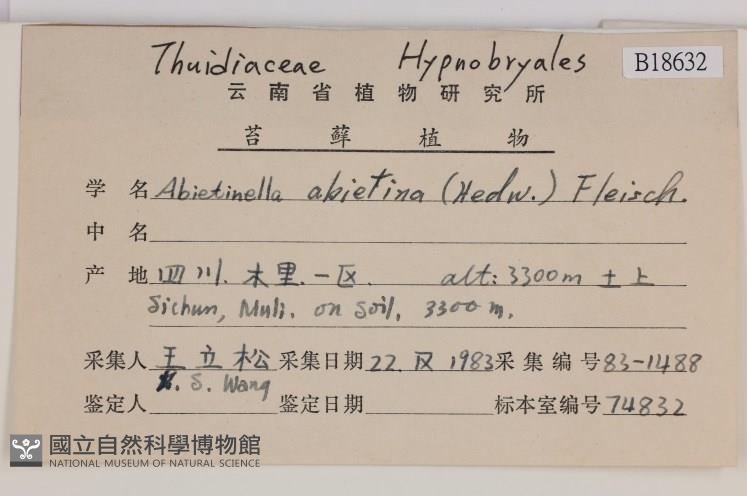 Thuidiaceae Hypnobryales
B18632
云南省植物研究所
苔藓植物
学名 Abietinella abietina (Hedw.) Fleisch.
中名
产地 四川. 木里. 一区. alt: 3300m 土上
Sichun, Muli. on soil, 3300m.
采集人 王立松 采集日期 22. 1983 采集编号 83-1488
S. Wang
鉴定人 鉴定日期 标本室编号 74832
國立自然科學博物館
NATIONAL MUSEUM OF NATURAL SCIENCE